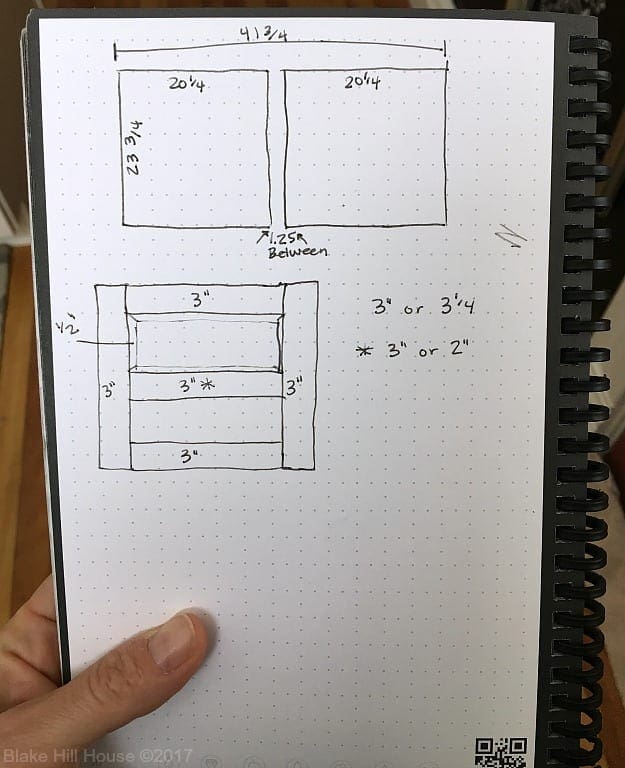 41 3/4
20 1/4
20 1/4
23 3/4
1.25
Between
3"
1/2"
3" or 3 1/4
* 3" or 2"
3"
3" *
3"
3"
Blake Hill House ©2017